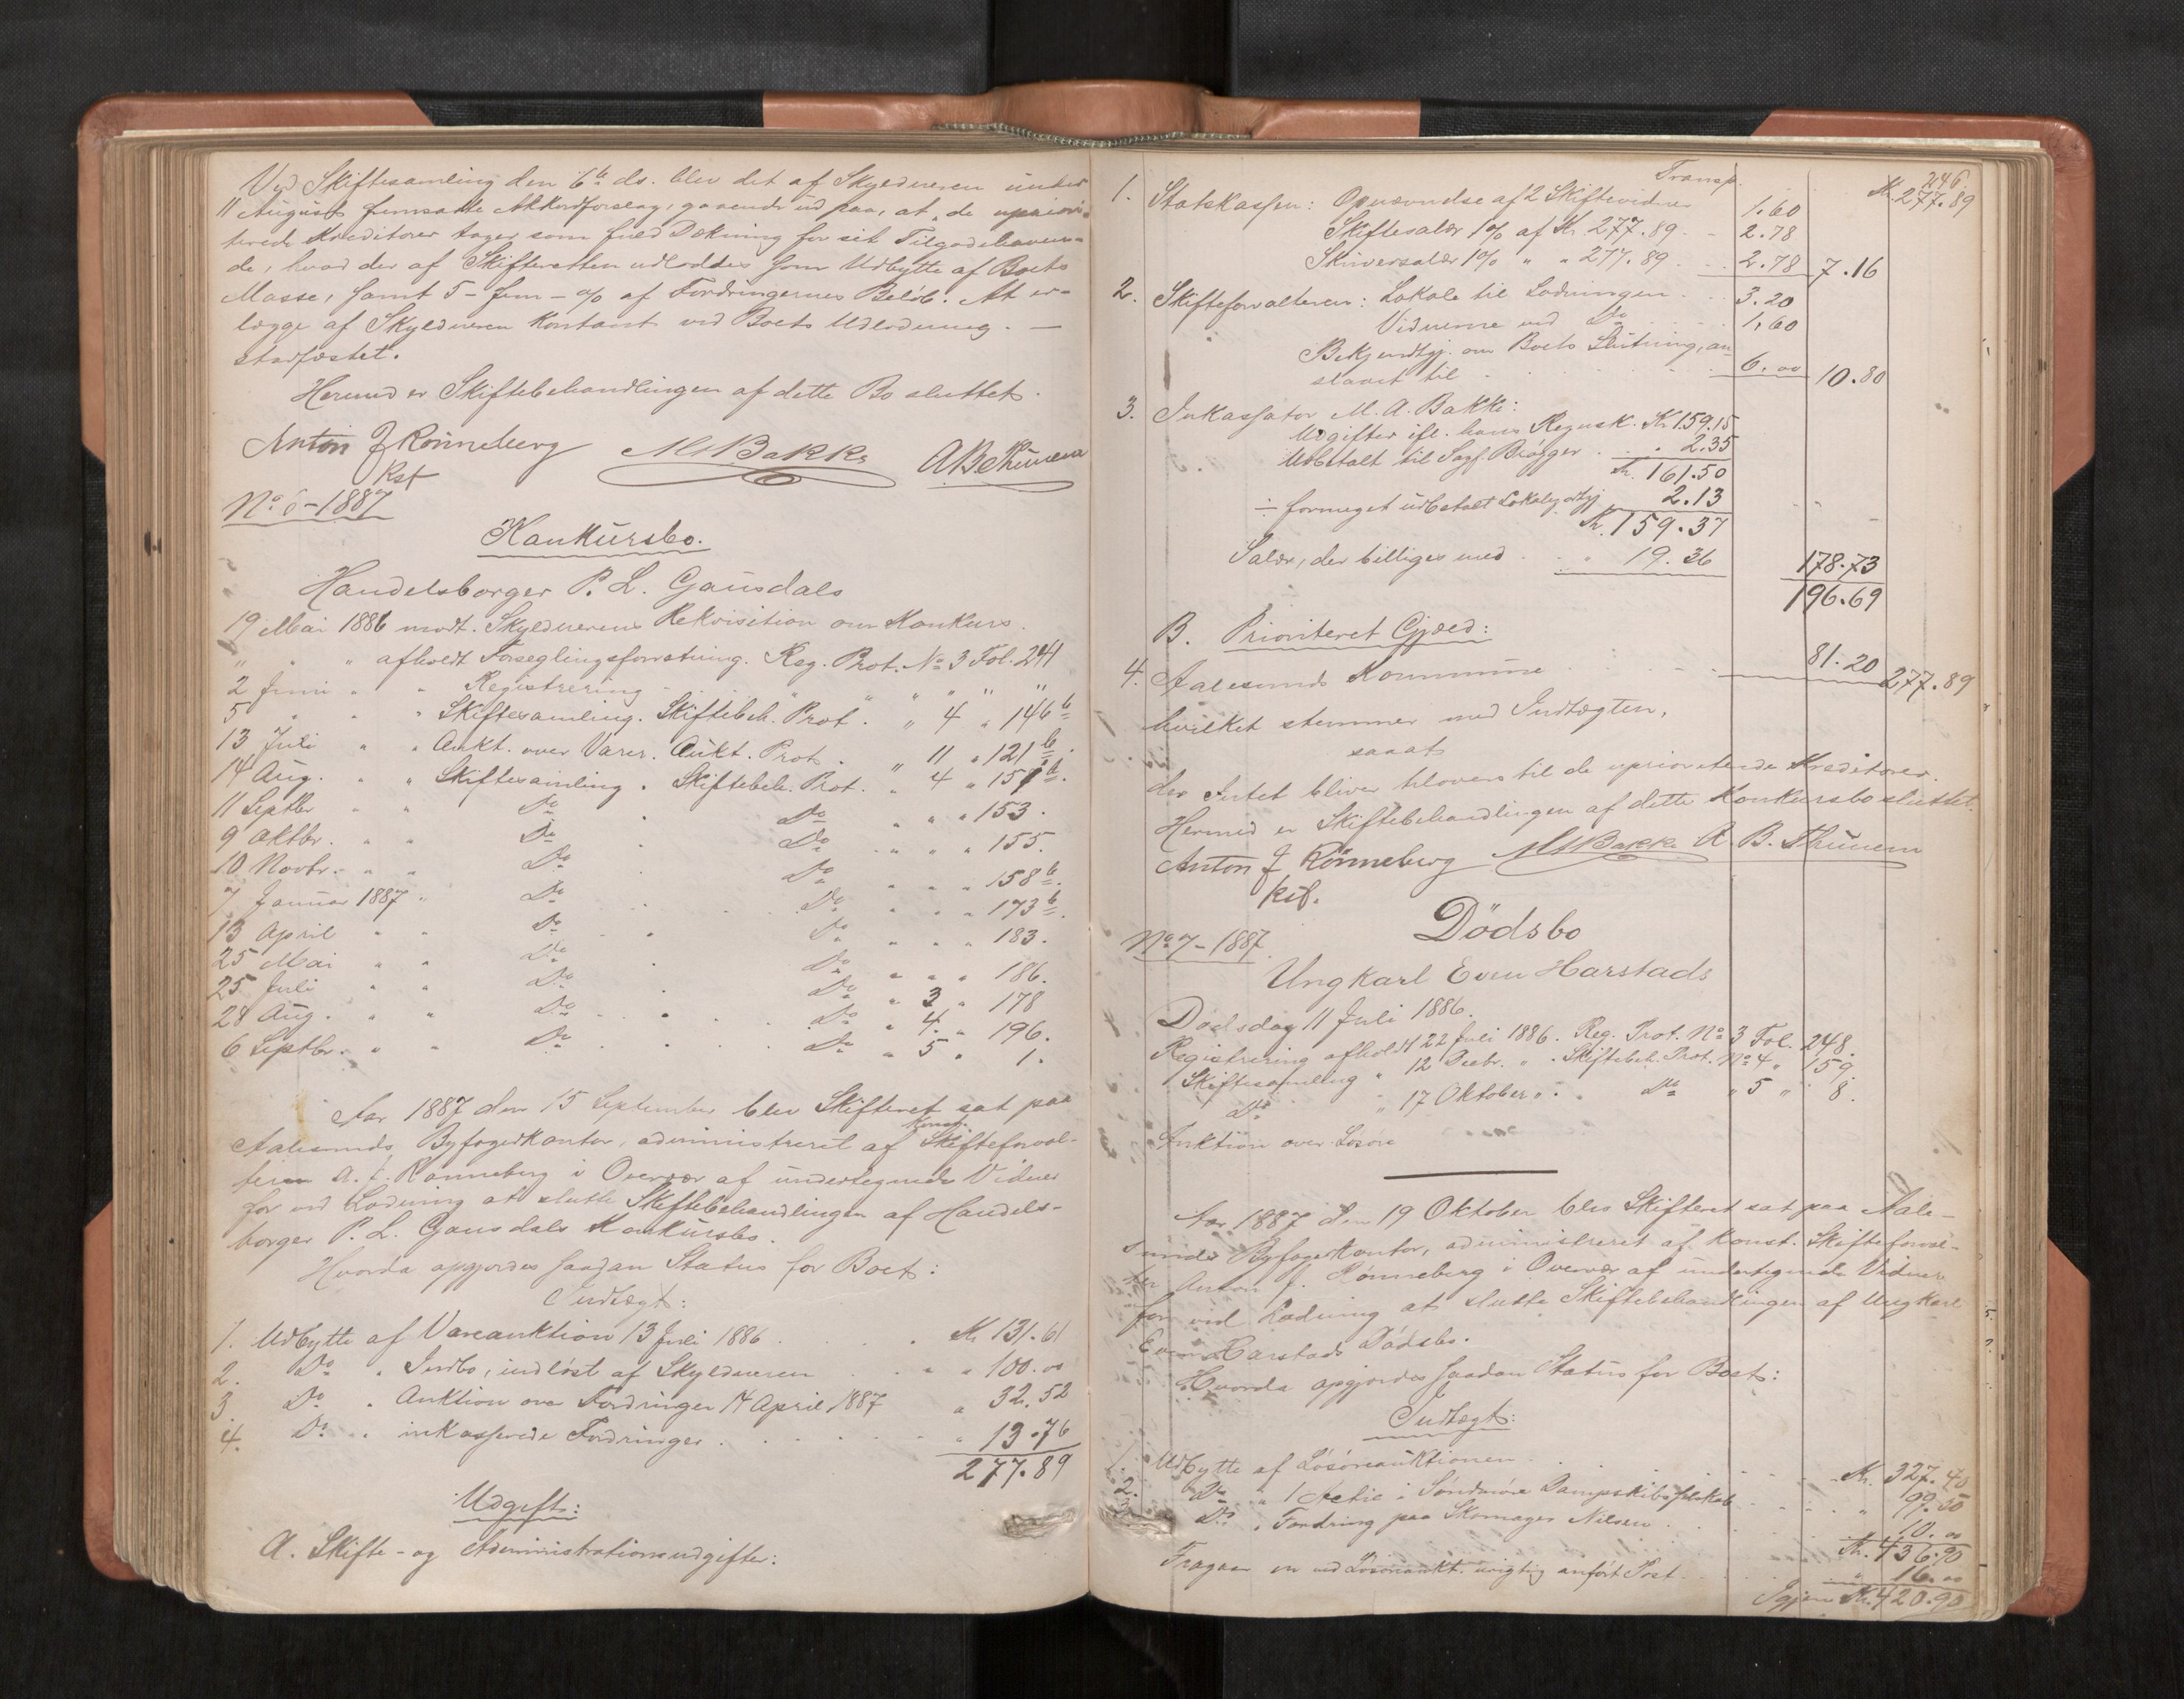 Ved Skiftesamling den 6te ds. blev det af Skyldneren under
11 August fremsatte Akkordforslag, gaaende ud paa, at "de upriori-
terede Kreditorer tager som fuld Dækning for sit Tilgodehaven-
de, hvad der af Skifteretten udloddes som Udbytte af Boets
Masse, samt 5 - fem - % af Fordringernes Beløb. At er-
lægge af Skyldneren Kontant ved Boets Udlodning. —
stadfæstet.
Hermed er Skiftebehandlingen af dette Bo sluttet.
Anton J Rönneberg MABakke ABThünem
Kst
No 6 - 1887
Konkursbo.
Handelsborger P. L. Gausdals
19 Mai 1886 modt. Skyldnerens Rekvisition om Konkurs.
" " " afholdt Forseglingsforretning. Reg. Prot. No 3 Fol. 241
2 Juni " " Registrering " " " " "
5 " " " Skiftesamling. Skiftebeh. Prot. " 4 " 146b
13 Juli " " Aukt. over Varer. Aukt. Prot. " 11 " 121b.
14 Aug. " " Skiftesamling. Skiftebeh. Prot. " 4 " 151b.
11 Septbr " " Do Do " " " 153.
9 Oktbr. " " Do Do " " " 155.
10 Novbr. " " Do Do " " " 158b.
7 Januar 1887 " Do Do " " " 173b.
13 April " " Do Do " " " 183.
25 Mai " " Do Do " " " 186.
25 Juli " " Do Do " 3 " 178
28 Aug. " " Do Do " 4. " 196.
6 Septbr. " " Do Do " 5 " 1.
Aar 1887 den 15 September blev Skifteret sat paa
Aalesunds Byfogedkontor, administreret af Konst. Skifteforval-
teren A. J. Rönneberg i Overvær af undertegnede Vidner
for ved Lodning at slutte Skiftebehandlingen af Handels-
borger P. L. Gausdals Konkursbo.
Hvorda opgjordes saadan Status for Boet:
Indtægt:
1. Udbytte af Vareauktion 13 Juli 1886 . . Kr 131.61
2. Do " Indbo, indløst af Skyldneren " " 100.00
3. Do " Auktion over Fordringer 14 April 1887 " 32.52
4. Do " inkasserede Fordringer . . . " 13.76
277.89
Udgift:
A. Skifte- og Administrationsudgifter:
246.
Transp. Kr. 277.89
1. Statskassen: Opnævndelse af 2 Skiftevidner 1.60
Skiftesalær 1% af Kr. 277.89 - 2.78
Skriversalær 1% " " 277.89 . 2.78 7.16
2. Skifteforvalteren: Lokale til Lodningen . . 3.20
Vidnerne ved Do . . 1.60
Bekjendtgj. om Boets Slutning, an-
slaaet til . . . 6.00 10.80
3. Inkassator M. A. Bakke:
Udgifter ifl. hans Regnsk. Kr 159.15
Udbetalt til Sagf. Brögger . . 2.35
Kr. 161.50
÷ formeget udbetalt Lokalgodtgj 2.13
Kr. 159.37
Salær, der billiges med . . " 19.36 178.73
196.69
B. Prioriteret Gjæld:
4. Aalesunds Kommune . . . 81.20 277.89
hvilket stemmer med Indtægten,
saaat
der Intet bliver tilovers til de uprioriterede Kreditorer.
Hermed er Skiftebehandlingen af dette Konkursbo sluttet.
Anton J Rönneberg MABakke A. B. Thünem
kst.
Dödsbo
No 7 - 1887.
Ungkarl Even Harstads
Dødsdag 11 Juli 1886.
Registrering afholdt 22 Juli 1886. Reg. Prot. No 3 Fol. 248.
Skiftesamling " 12 Decbr. " . Skiftebeh. Prot. No 4 " 159.
Do " 17 Oktober " . Do " 5 " 8.
Auktion over Løsøre
Aar 1887 den 19 Oktober blev Skifteret sat paa Aale-
sunds Byfogedkontor, administreret af Konst. Skifteforval-
ter Anton J. Rönneberg i Overvær af undertegnede Vidner
for ved Lodning at slutte Skiftebehandlingen af Ungkarl
Even Harstads Dödsbo.
Hvorda opgjordes saadan Status for Boet:
Indtægt:
1. Udbytte af Løsøreauktionen . . . Kr. 327.40
2. Do " 1 Actie i Søndmøre Dampskibsselskab . . " 99.50
3. Do " Fordring paa Skomager Nilsen . . . 10.00
Kr. 436.90
Fragaar en ved Løsøreaukt. urigtig anført Post . . " 16.00
Igjen Kr. 420.90